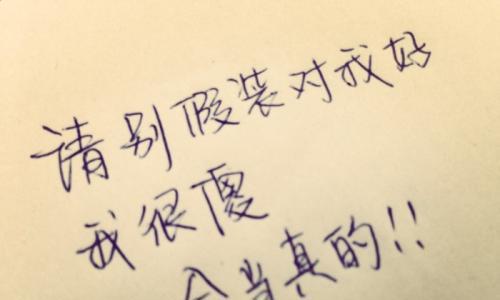 请别假装对我好
我很傻
会当真的!!